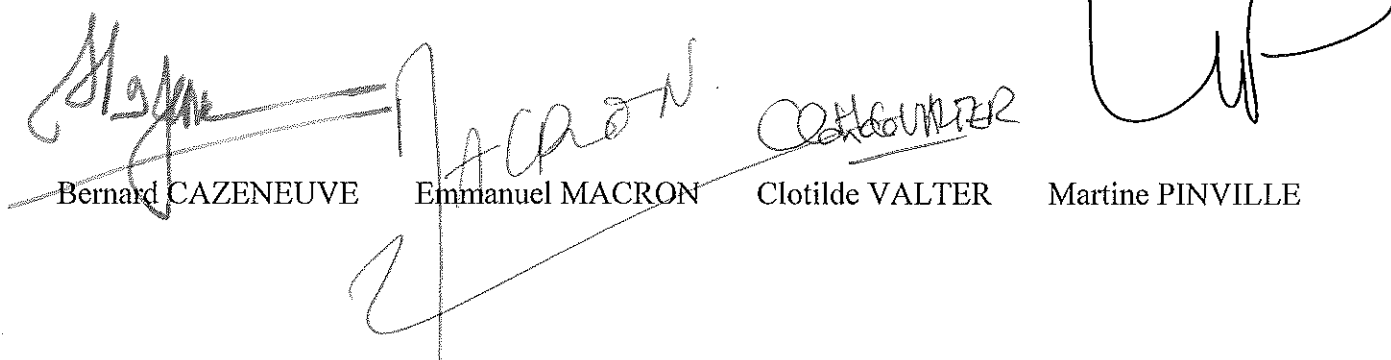 MACRON
Bernard CAZENEUVE Emmanuel MACRON Clotilde VALTER Martine PINVILLE